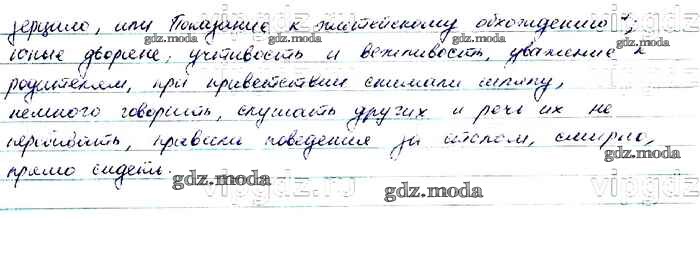 зерцало, или Показание к житейскому обхождению";
юные дворяне; учтивость и вежливость, уважение к
родителям, при приветствии снимали шляпу,
немного говорить, слушать других и речь их не
перебивать, правила поведения за столом, смирно,
прямо сидеть.
gdz.moda
gdz.moda
gdz.moda
gdz.moda
gdz.moda
gdz.moda
vipgdz.ru
vipgdz
vipgdz.ru
vipgdz